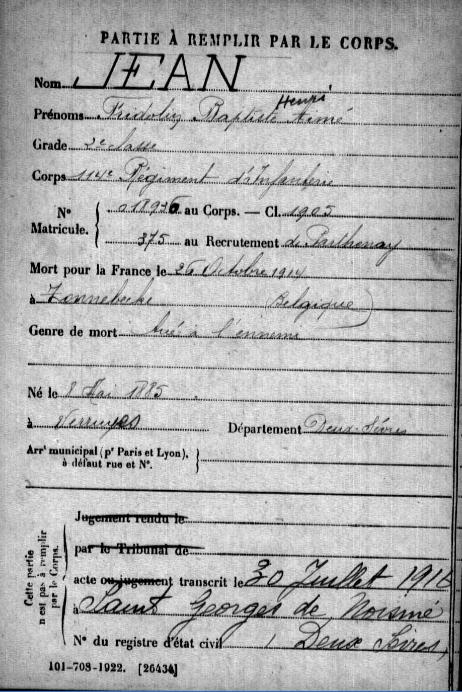 PARTIE À REMPLIR PAR LE CORPS.
Nom JEAN
Henri
Prénoms Fridolin Baptiste Aimé
Grade 2e classe
Corps 114e Régiment d'Infanterie
N° Matricule. 018936 au Corps. — Cl. 1905
375 au Recrutement de Parthenay
Mort pour la France le 26 Octobre 1914
à Zonnebecke (Belgique)
Genre de mort tué à l'ennemi
Né le 8 Mai 1885
à Verruyes Département Deux-Sèvres
Arrt municipal (pr Paris et Lyon), à défaut rue et N°.
Cette partie n'est pas à remplir par le Corps.
Jugement rendu le
par le Tribunal de
acte ou jugement transcrit le 30 Juillet 1916
à Saint Georges de Noisné
N° du registre d'état civil Deux Sèvres,
101-708-1922. [26434]